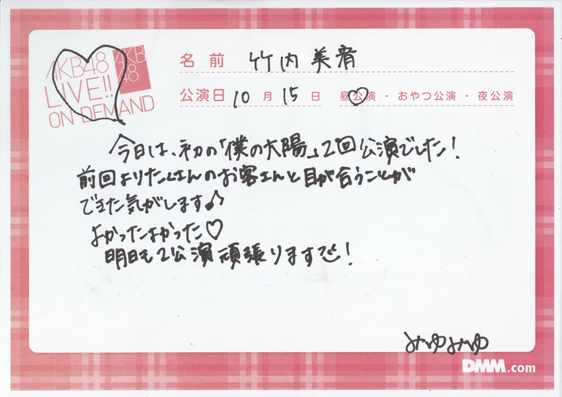 AKB48
LIVE!!
ON DEMAND
AKB
48
名前 竹内美宥
公演日 10月15日 昼公演・おやつ公演・夜公演
今日は、初の「僕の太陽」2回公演でした!
前回よりたくさんのお客さんと目が合うことが
できた気がします♪
よかったよかった♡
明日も2公演頑張りますで!
みゆみゆ
DMM.com